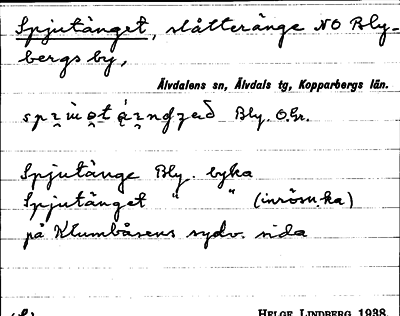 Spjutänget, slåtteränge NO Bly-
bergs by,
Älvdalens sn, Älvdals tg, Kopparbergs län.
Bly. O.Gr.
Spjutänge Bly. byka
Spjutänget " " (inröm.ka)
på Klumbåsens sydv. sida
HELGE LINDBERG 1938.